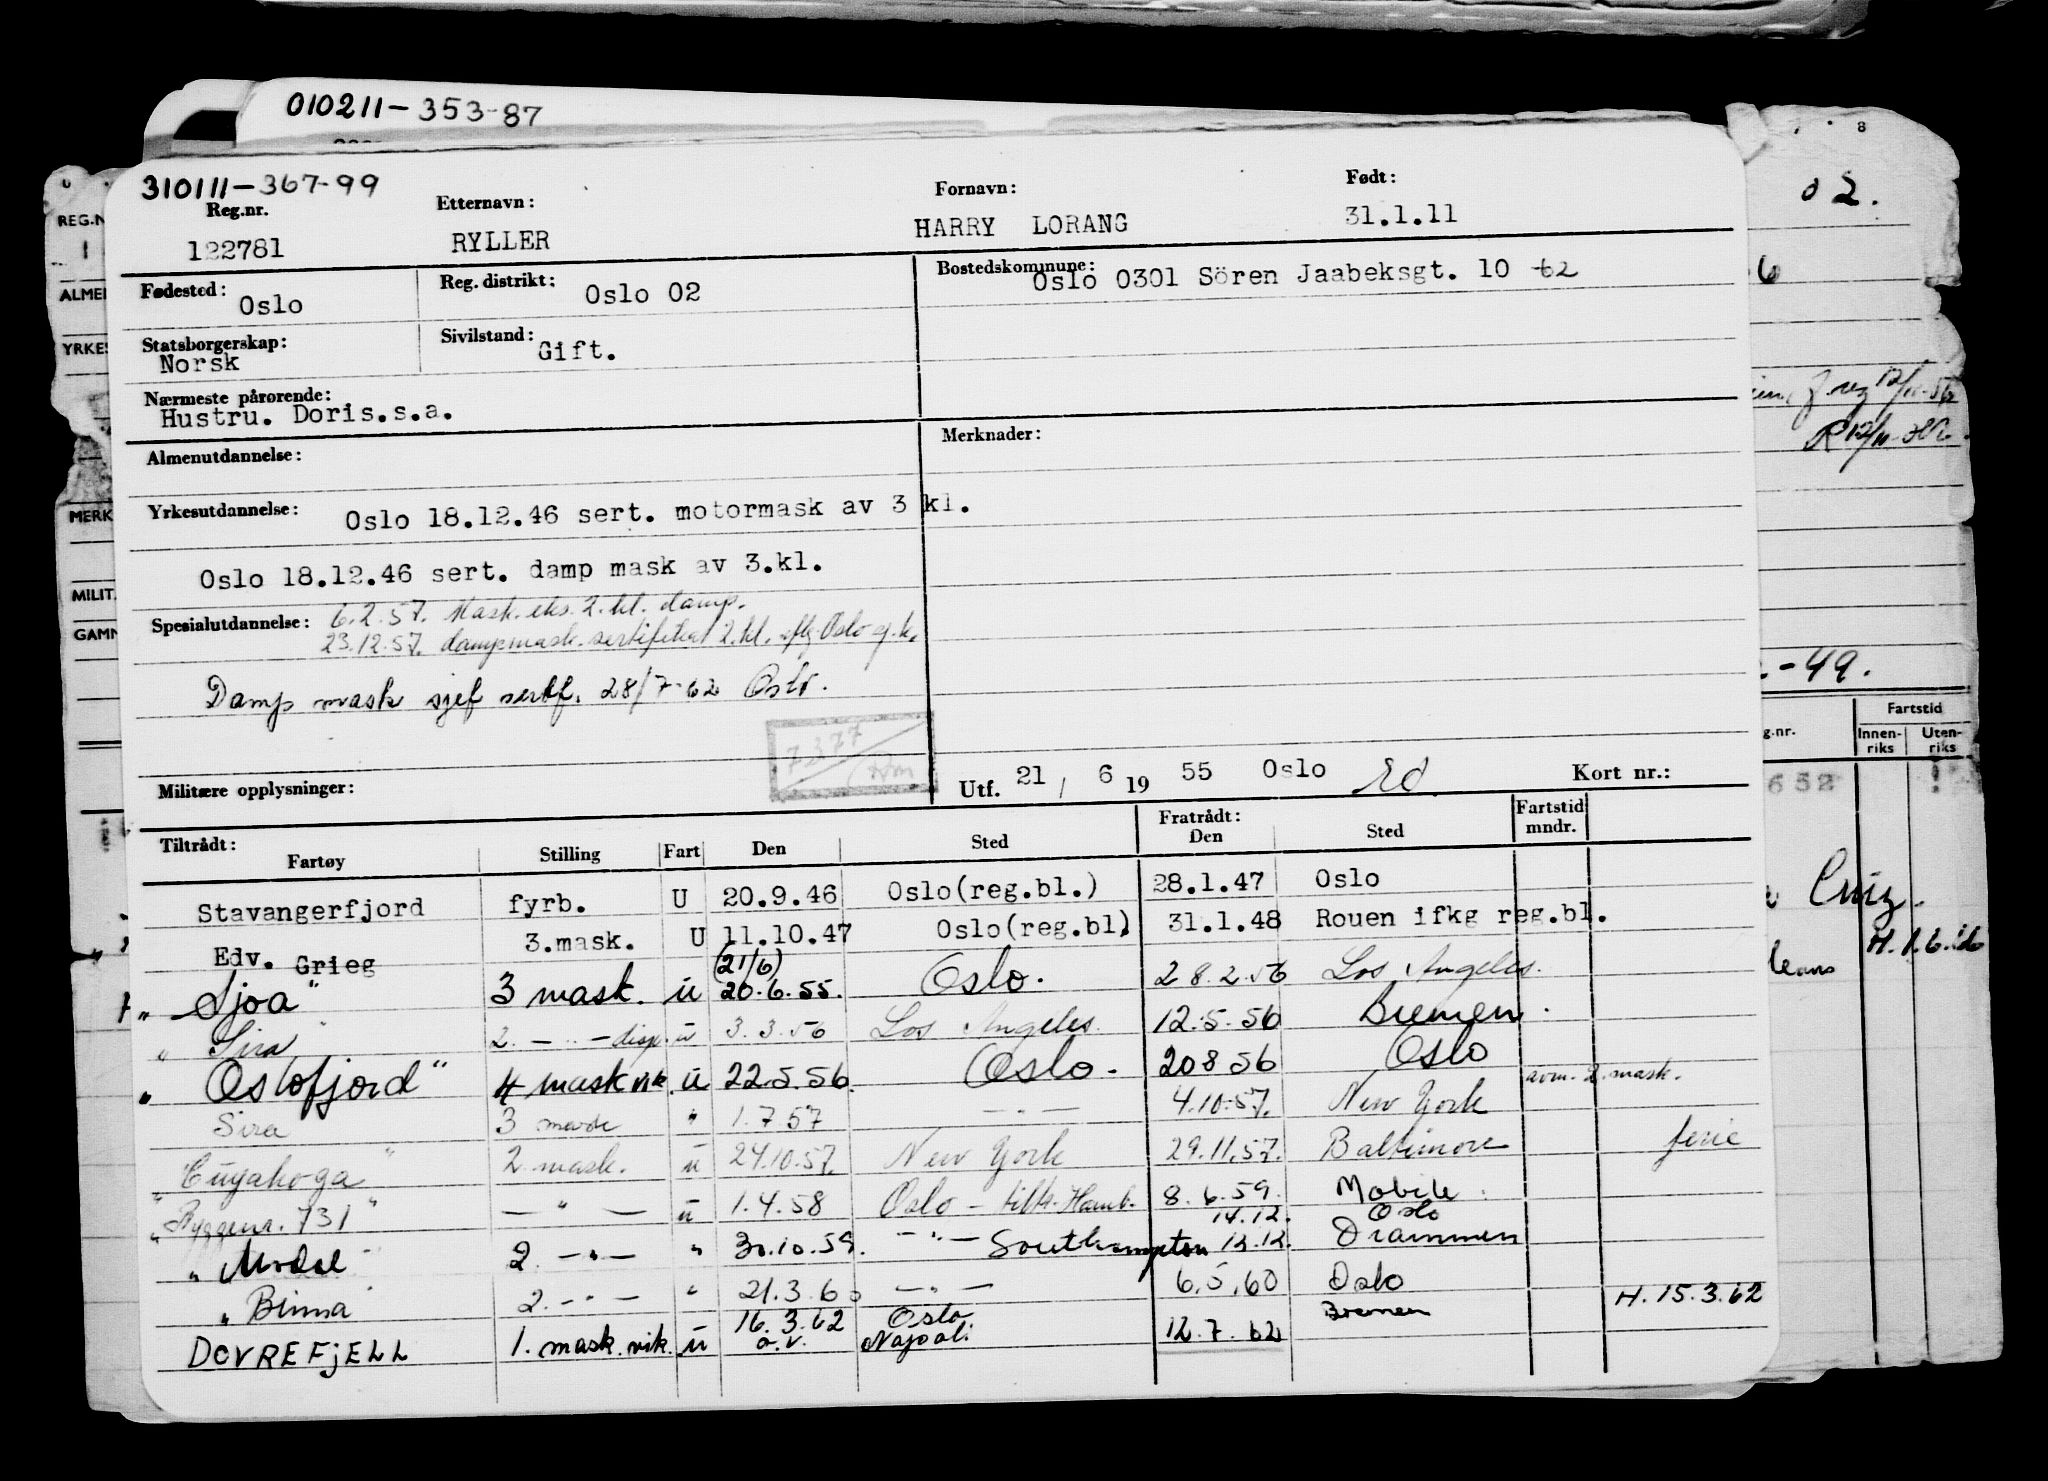 010211-353-87
310111-367-99
Reg.nr. Etternavn: Fornavn: Født:
122781 RYLLER HARRY LORANG 31.1.11
Fødested: Oslo Reg. distrikt: Oslo 02 Bostedskommune: Oslo 0301 Sören Jaabeksgt. 10 -62
Statsborgerskap: Norsk Sivilstand: Gift.
Nærmeste pårørende:
Hustru. Doris.s.a.
Almenutdannelse: Merknader:
Yrkesutdannelse: Oslo 18.12.46 sert. motormask av 3 kl.
Oslo 18.12.46 sert. damp mask av 3.kl.
Spesialutdannelse: 6.2.57. Mask.eks. 2. kl. damp.
23.12.57. dampmask. sertifikat 2. kl. iflg. Oslo
Damp mask sjef sertf. 28/7-62 Oslo.
7377
Militære opplysninger: Utf. 21 / 6 1955 Oslo Kort nr.:
Tiltrådt: Fratrådt: Fartstid
Fartøy Stilling Fart Den Sted Den Sted mndr.
Stavangerfjord fyrb. U 20.9.46 Oslo(reg.bl.) 28.1.47 Oslo
Edv. Grieg 3.mask. U 11.10.47 Oslo(reg.bl) 31.1.48 Rouen ifkg reg.bl.
(21/6)
" Sjoa" 3 mask. u 20.6.55. Oslo. 28.2.56 Los Angeles.
" Sira" 2. — " — disp. u 3.3.56 Los Angeles. 12.5.56 Bremen.
" Oslofjord" 4 mask vik. u 22.5.56. Oslo. 20 8 56 Oslo
avm. 2. mask.
Sira 3 mask " 1.7 57 — " — 4.10.57. New York
" Cuyahoga" 2 mask. u 24.10.57. New York 29.11.57. Baltimore ferie
" Byggenr. 731" — " — u 1.4.58 Oslo - tiltr. Hamb. 8.6.59. Mobile.
14.12. Oslo
" Modal" 2. — " — " 30.10.59. — " — Southampton 12.12. Drammen
" Binna" 2. — " — " 21.3.60 — " — 6.5.60 Oslo H.15.3.62
16.3.62 Oslo Bremen
DOVREFJELL 1. mask. vik. u 12.7.62
02.
-49.
Fartstid
Innenriks Utenriks
H.1.6.
REG.N
YRKES
MERK
MILIT.
GAMM